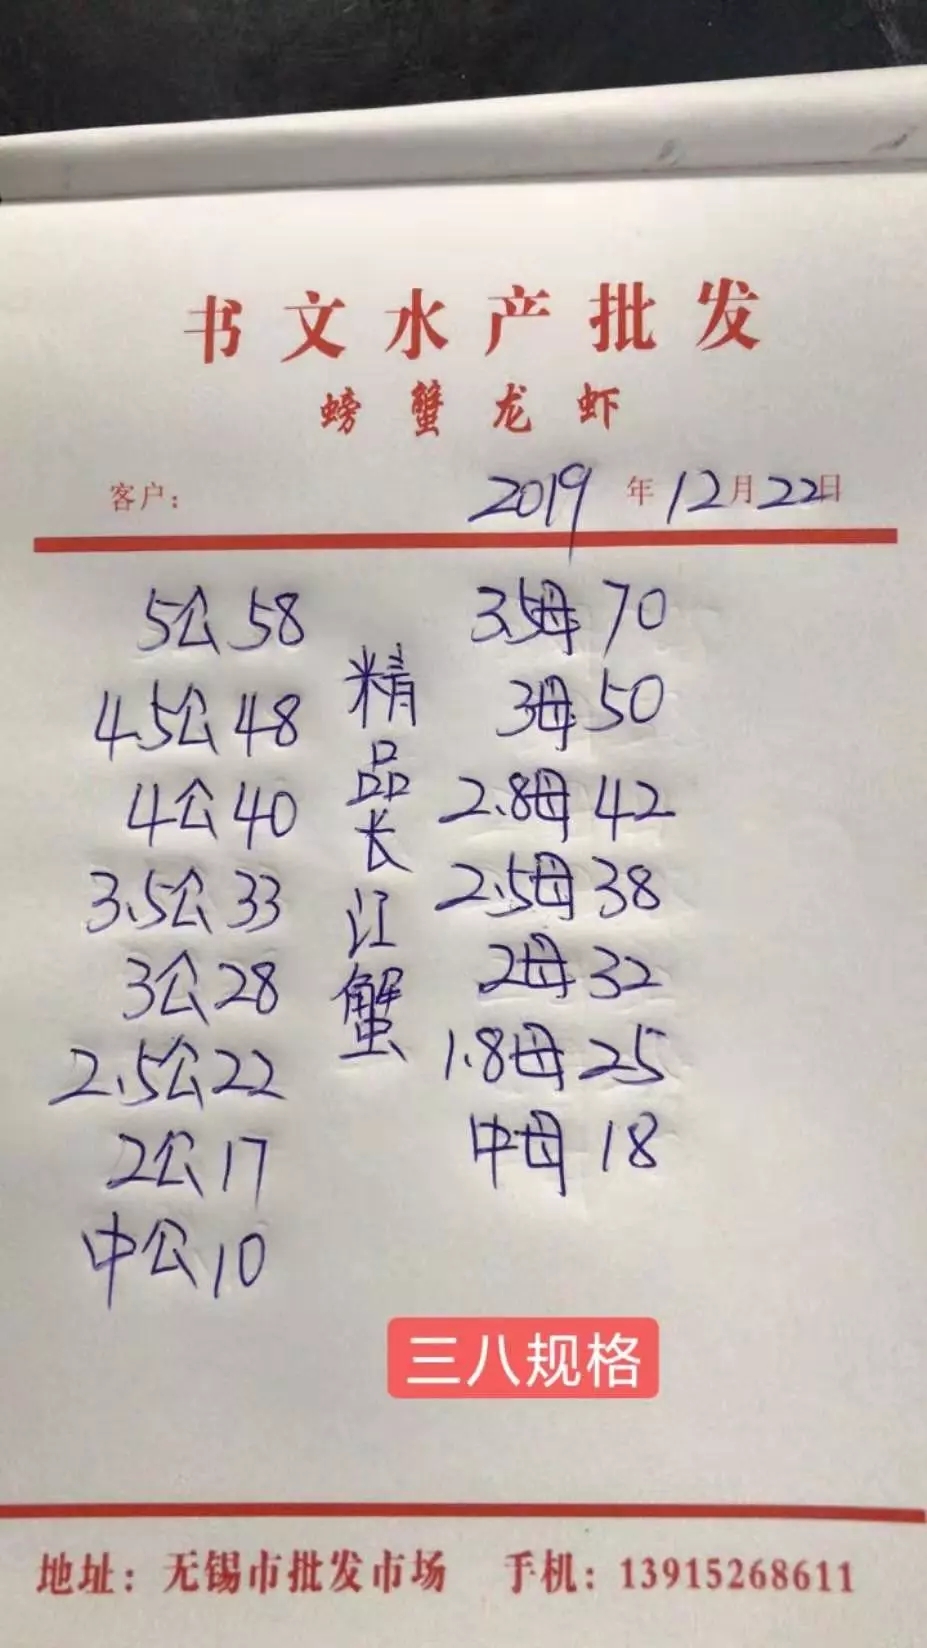 书文水产批发
螃蟹龙虾
客户： 2019年12月22日
5公58
4.5公48
4公40
3.5公33
3公28
2.5公22
2公17
中公10
精品长江蟹
3.5母70
3母50
2.8母42
2.5母38
2母32
1.8母25
中母18
三八规格
地址：无锡市批发市场 手机：13915268611